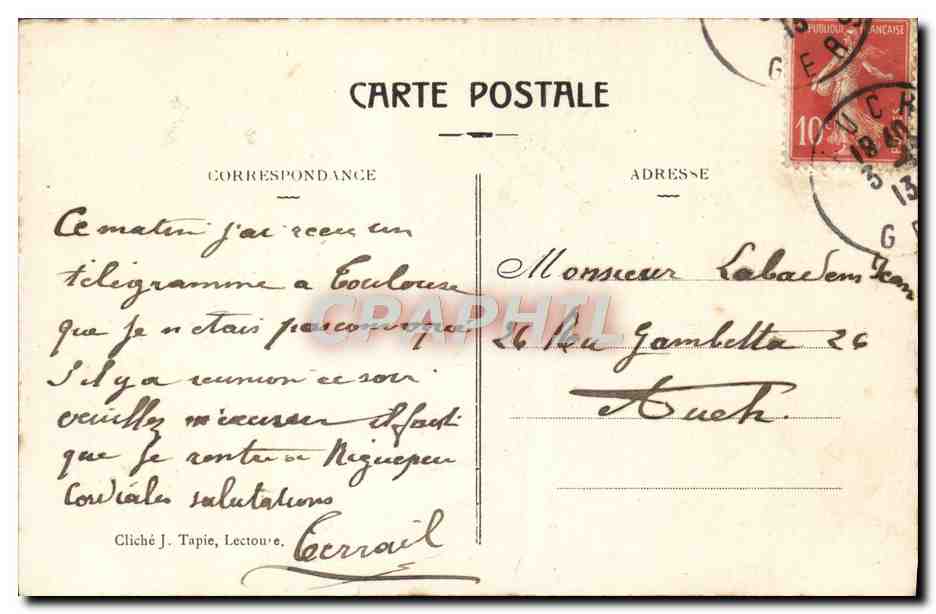 CARTE POSTALE
CORRESPONDANCE
Ce matin j'ai reçu un
télégramme a Toulouse
que je n etais pas convoqué
S il y a reunion ce soir
veuillez m'excuser il faut
que je rentre a Riguepeu
Cordiales salutations
Terrail
Cliché J. Tapie, Lectoure.
ADRESSE
Monsieur Labadens Jean
26 Rue Gambetta 26
Auch.
RÉPUBLIQUE FRANÇAISE
10
POSTES
GER
AUCH
18
3
13
G
CPARAPHIL